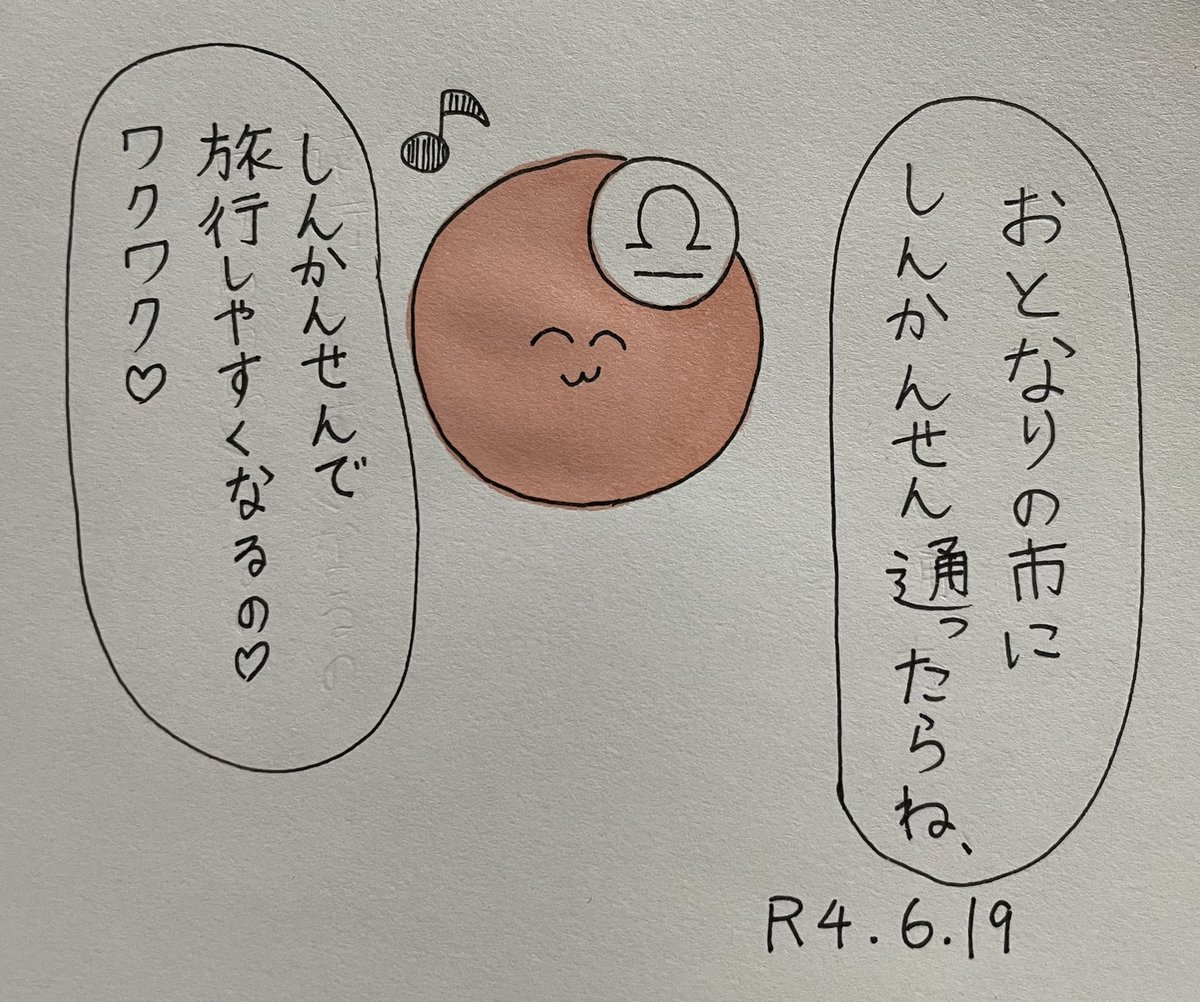 おとなりの市に
しんかんせん通ったらね、
しんかんせんで
旅行しやすくなるの♡
ワクワク♡
R4.6.19